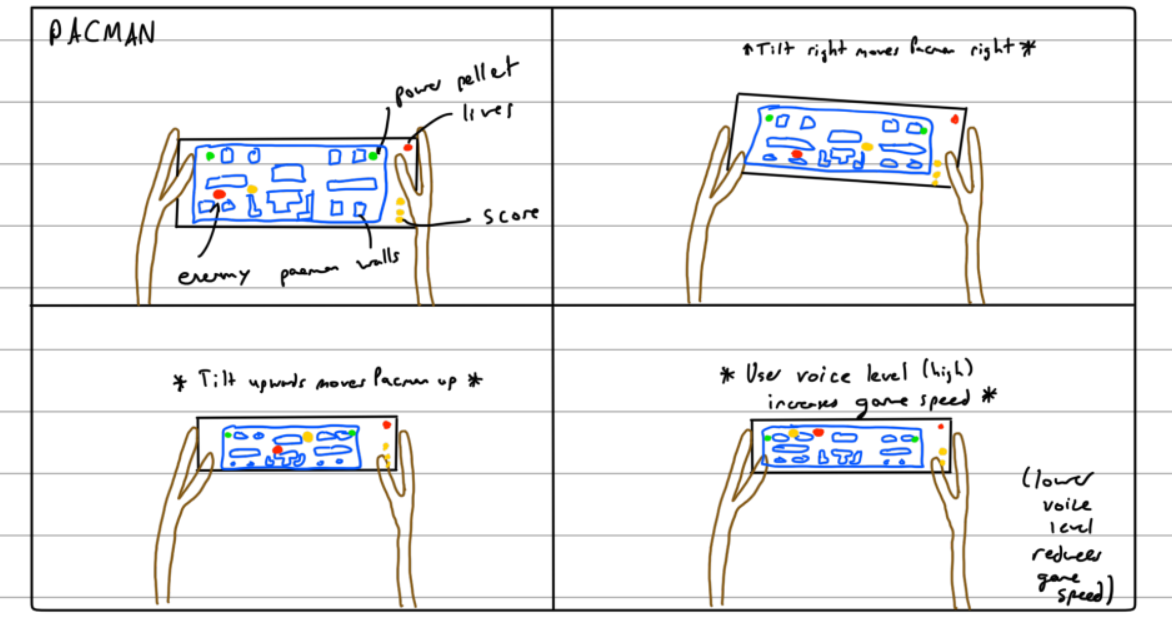 PACMAN
power pellet
lives
score
enemy pacman walls
*Tilt right moves Pacman right *
* Tilt upwards moves Pacman up *
* User voice level (high)
increases game speed *
(lower
voice
level
reduces
game
speed)